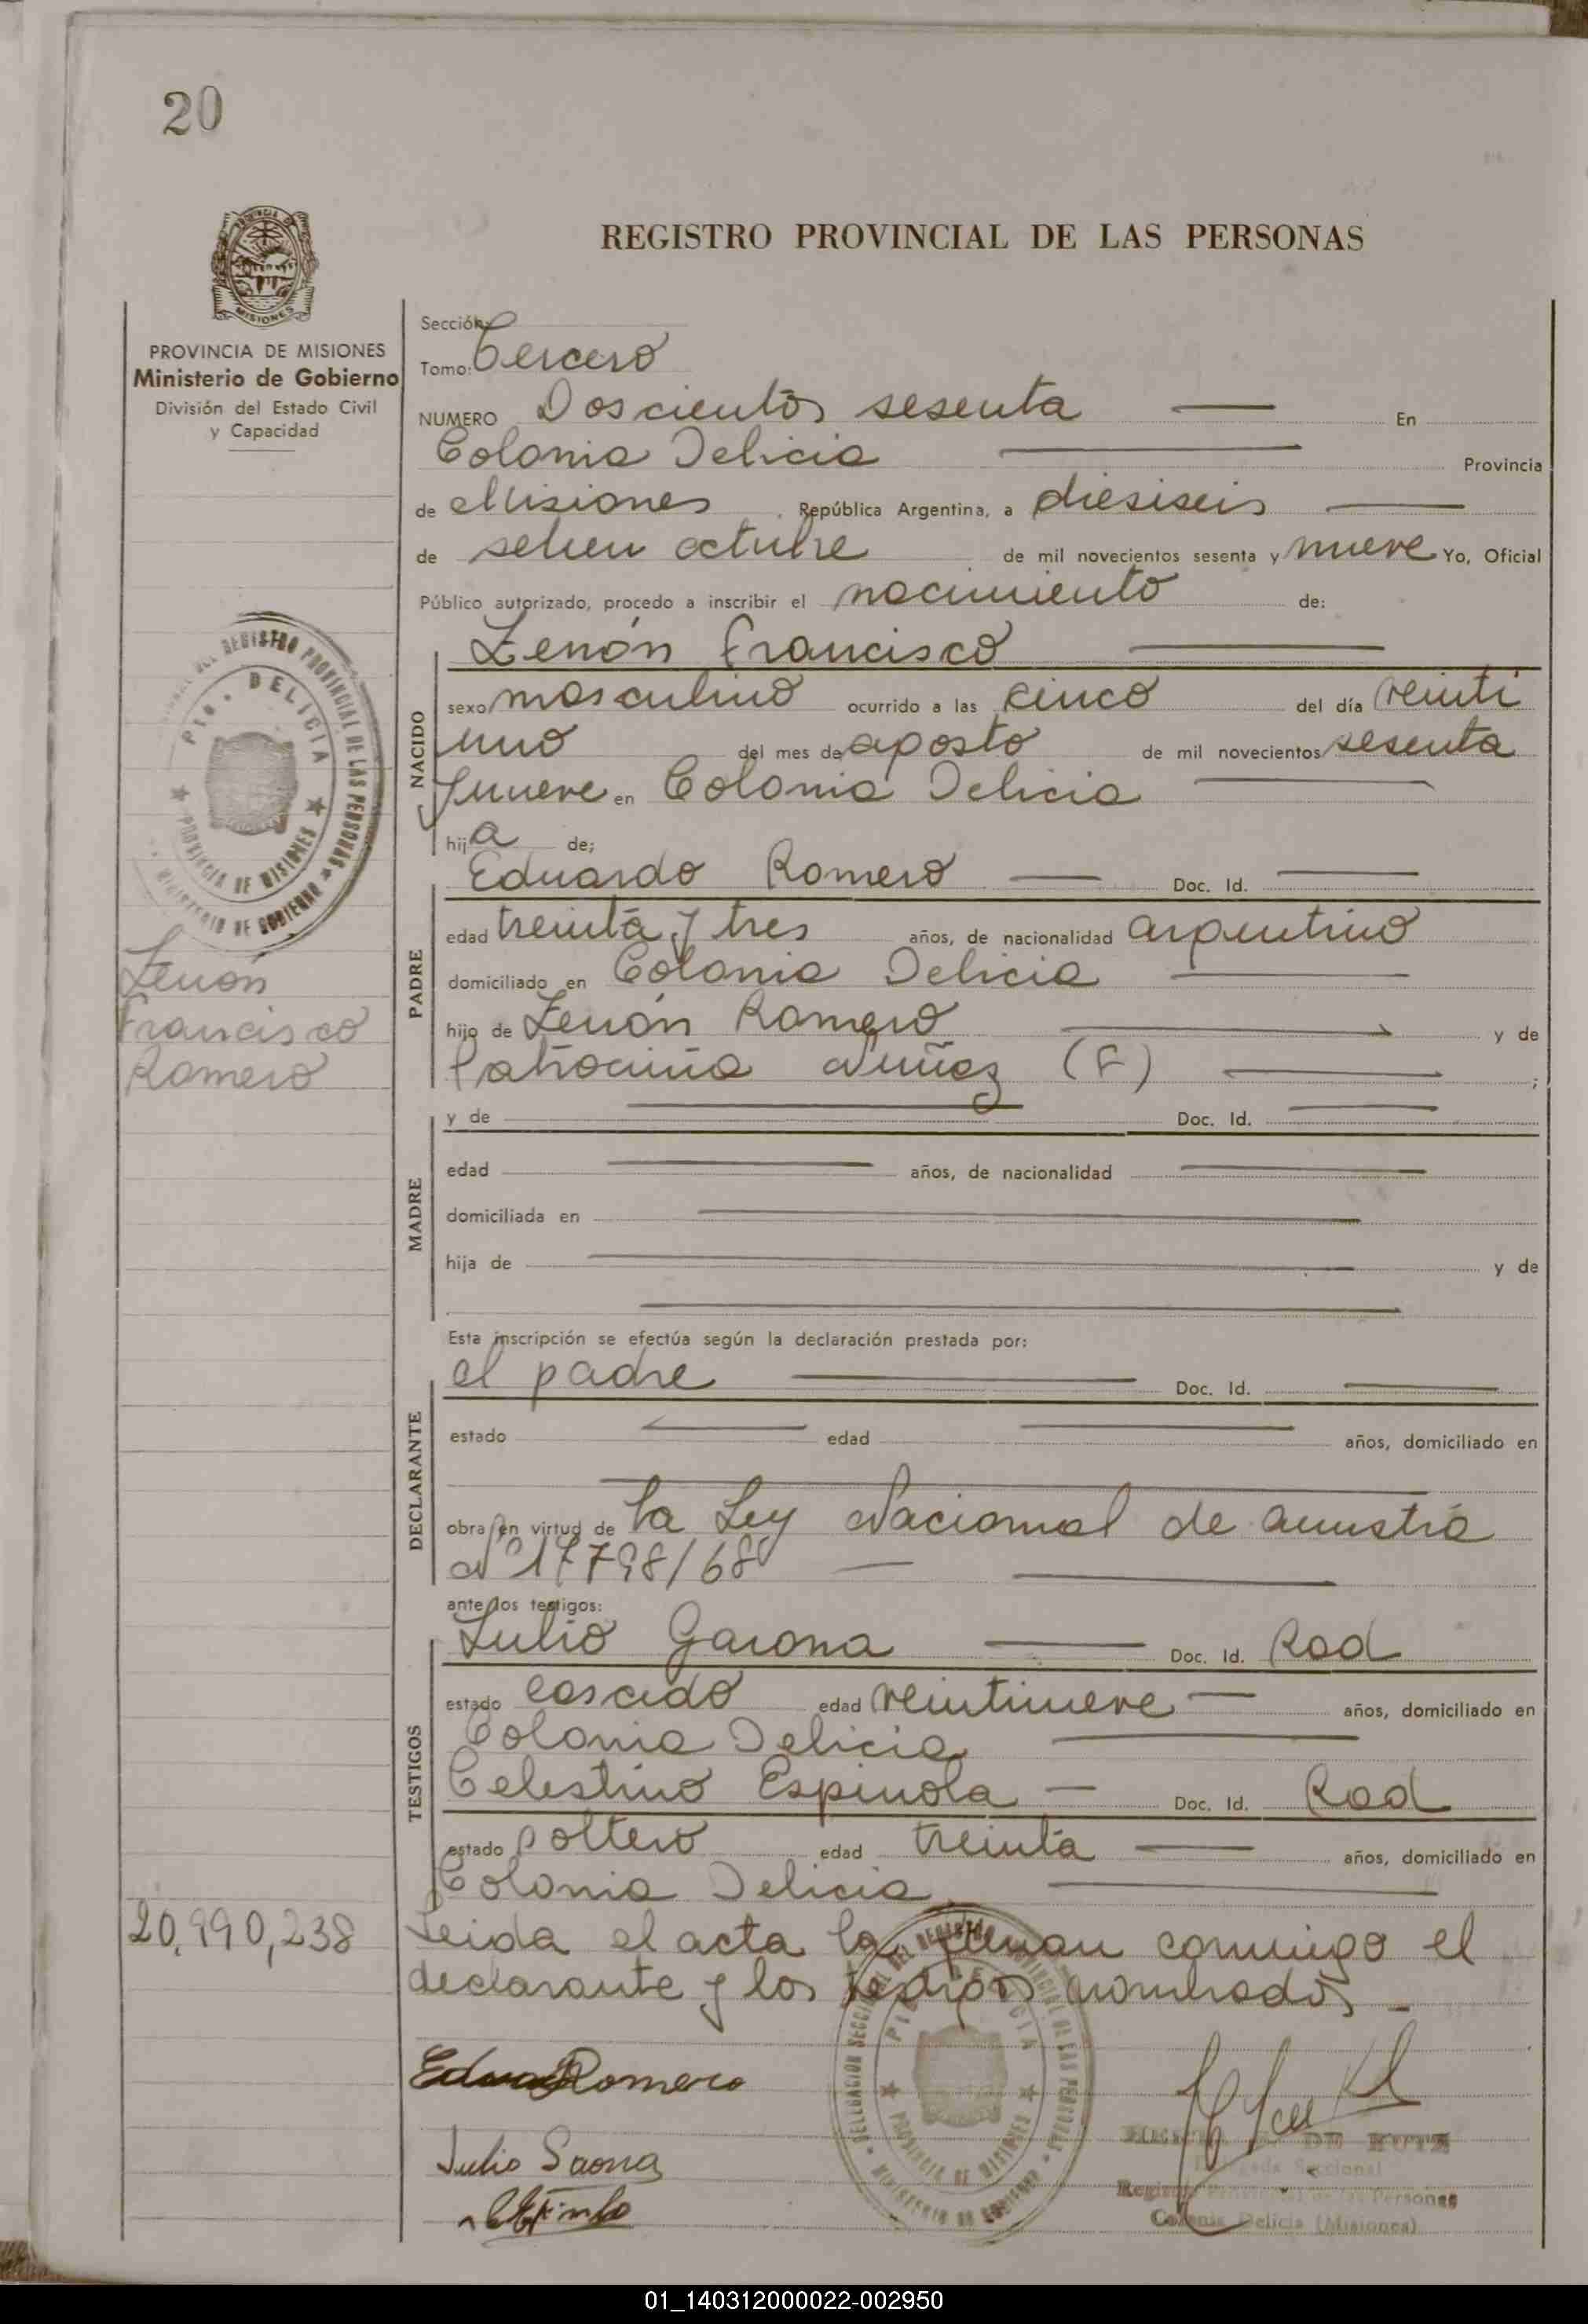 20
MISIONES
PROVINCIA DE MISIONES
Ministerio de Gobierno
División del Estado Civil
y Capacidad
REGISTRO PROVINCIAL DE LAS PERSONAS
Sección:
Tomo: Tercero
NUMERO Doscientos sesenta — En
Colonia Delicia — Provincia
de Misiones República Argentina, a diesiseis —
de octubre de mil novecientos sesenta y nueve Yo, Oficial
Público autorizado, procedo a inscribir el nacimiento de:
Zenón Francisco —
NACIDO
sexo masculino ocurrido a las cinco del día veinti
uno del mes de agosto de mil novecientos sesenta
y nueve en Colonia Delicia —
hij a de;
Eduardo Romero — Doc. Id. —
PADRE
edad treinta y tres años, de nacionalidad argentino
domiciliado en Colonia Delicia —
hijo de Zenón Romero — y de
Patrocinia Nuñez (F) — ;
Zenón
Francisco
Romero
MADRE
y de — Doc. Id. —
edad — años, de nacionalidad —
domiciliada en —
hija de — y de
—
Esta inscripción se efectúa según la declaración prestada por:
el padre — Doc. Id. —
DECLARANTE
estado — edad — años, domiciliado en
—
obra en virtud de la Ley Nacional de amnistia
Nº 17798/68 —
ante los testigos:
Julio Gaona — Doc. Id. Rad
TESTIGOS
estado casado edad veintinueve — años, domiciliado en
Colonia Delicia —
Celestino Espinola — Doc. Id. Rad
estado soltero edad treinta — años, domiciliado en
Colonia Delicia —
20,990,238
Leida el acta la firman conmigo el
declarante y los testigos nombrados -
Romero
Julio Gaona
DE KUTZ
Delegada Seccional
Registro Provincial de las Personas
Colonia Delicia (Misiones)
DELEGACION SECCIONAL DEL REGISTRO PROVINCIAL DE LAS PERSONAS
PTO. DELICIA
PROVINCIA DE MISIONES
MINISTERIO DE GOBIERNO
01_140312000022-002950